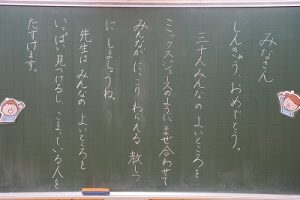 みなさん
しんきゅう、おめでとう。
三十人みんなの よいところを
ミックスジュースのようにまぜ合わせて
みんなが にっこり わらえる 教しつ
に しましょうね。
先生は みんなの よいところを
いっぱい 見つけるし、こまっている人を
たすけます。